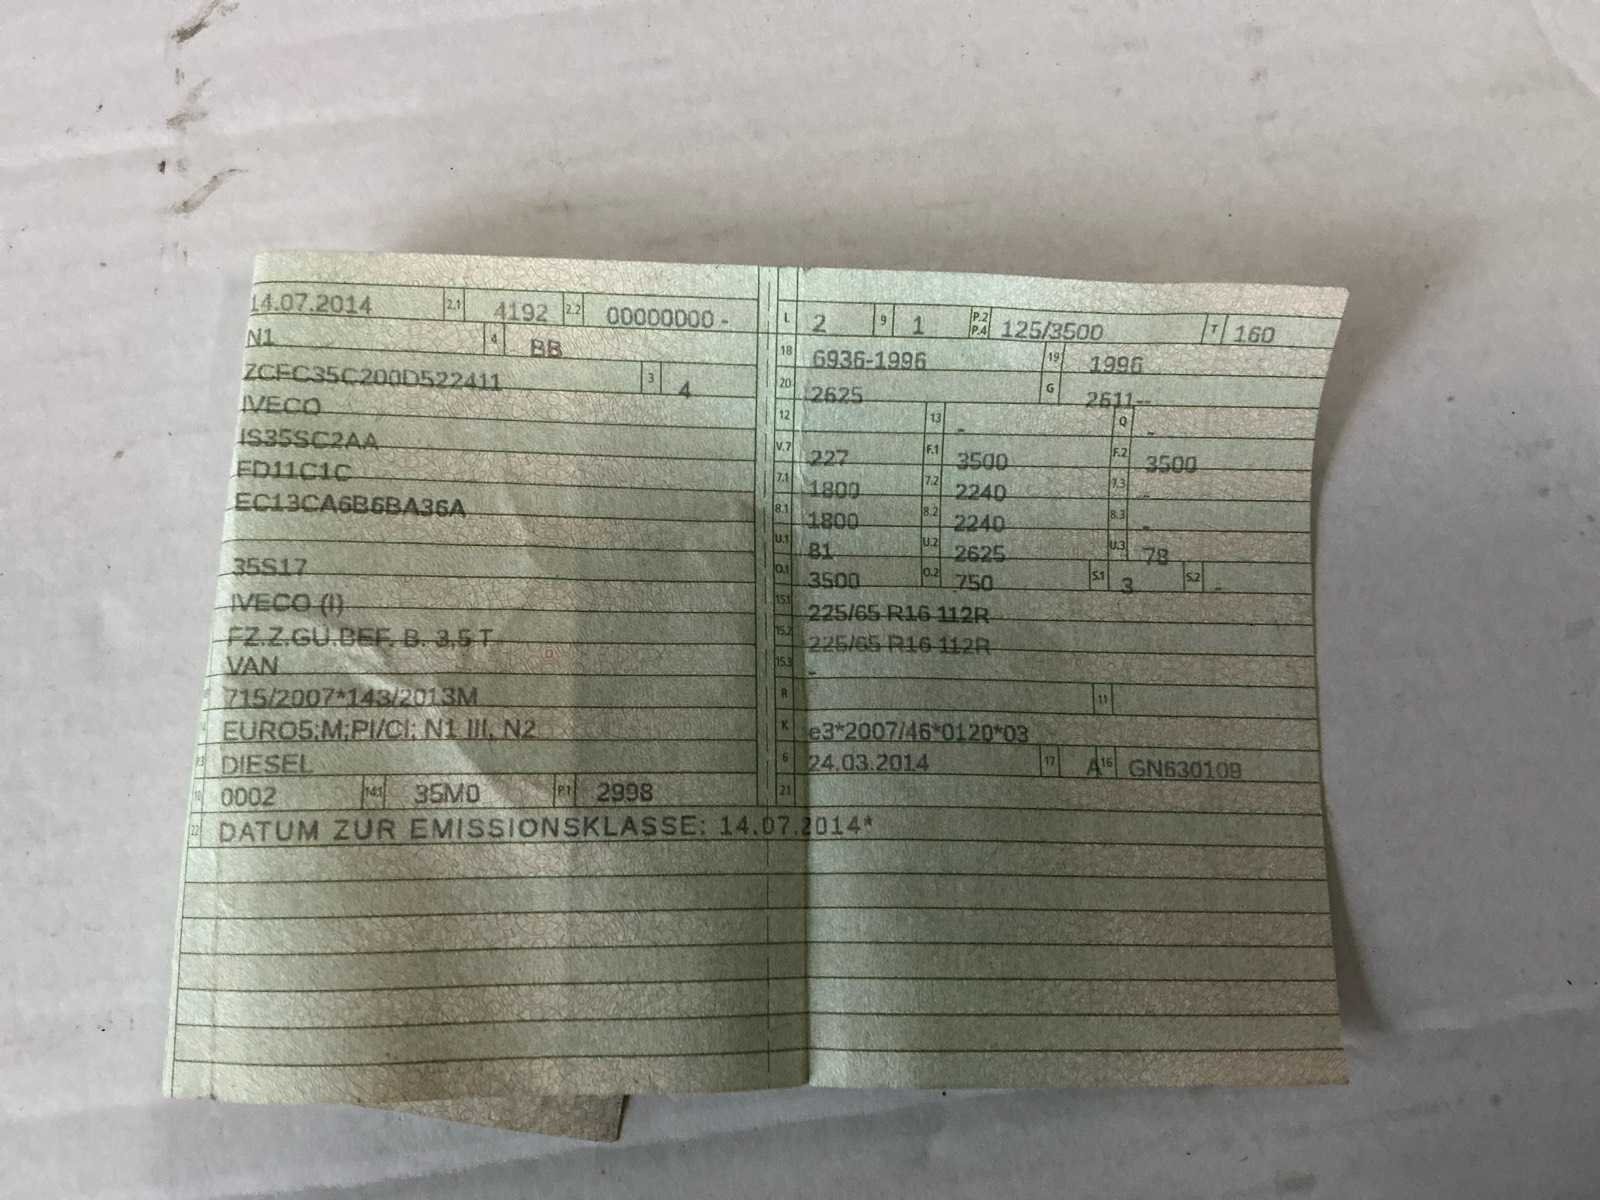 14.07.2014 2.1 4192 2.2 00000000 -
N1 4 BB
ZCFC35C200D522411 3 4
IVECO
IS35SC2AA
ED11C1C
EC13CA6B6BA36A
35S17
IVECO (I)
FZ.Z.GÜ.BEF. B. 3,5 T
VAN
715/2007*143/2013M
EURO5;M;PI/CI; N1 III, N2
DIESEL
10 0002 14.1 35M0 P.1 2998
22 DATUM ZUR EMISSIONSKLASSE: 14.07.2014*
L 2 9 1 P.2 P.4 125/3500 T 160
18 6936-1996 19 1996
20 2625 G 2611--
12 13 - Q -
V.7 227 F.1 3500 F.2 3500
7.1 1800 7.2 2240 7.3 -
8.1 1800 8.2 2240 8.3 -
U.1 81 U.2 2625 U.3 78
O.1 3500 O.2 750 S.1 3 S.2 -
15.1 225/65 R16 112R
15.2 225/65 R16 112R
15.3 -
R 11
K e3*2007/46*0120*03
6 24.03.2014 17 A 16 GN630109
21